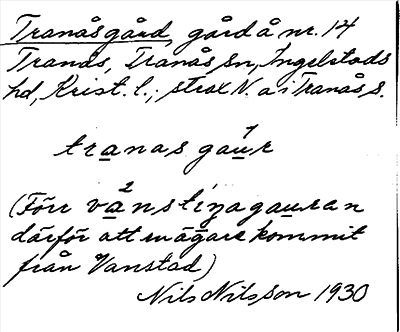 Tranåsgård, gård å nr. 14
Tranås, Tranås sn, Ingelstads
hd, Krist. l.; strax N. o i Tranås s.
tranas gau̲r
(Förr va̲nstiŋagau̲ran
därför att en ägare kommit
från Vanstad)
Nils Nilsson 1930